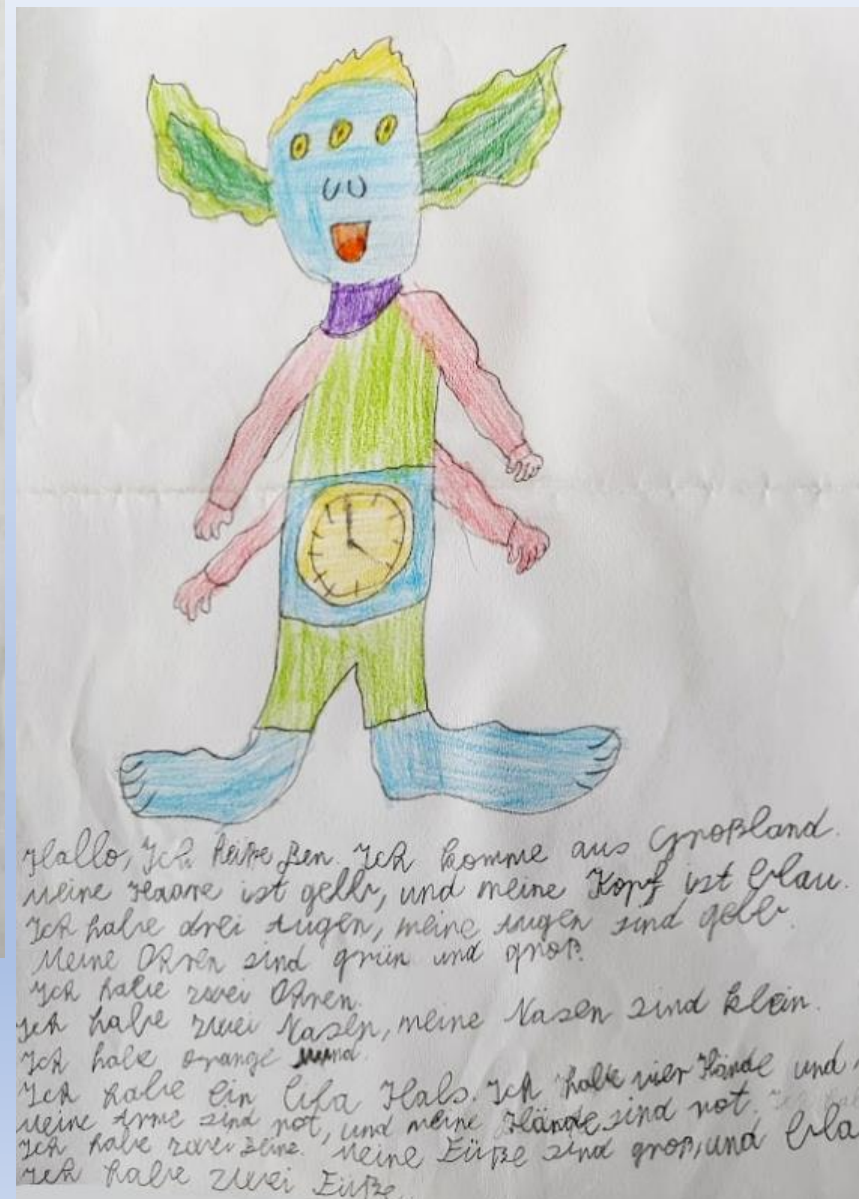 Hallo, Ich heiße Ben. Ich komme aus Großland.
Meine Haare ist gelb, und meine Kopf ist blau.
Ich habe drei Augen, meine Augen sind gelb.
Meine Ohren sind grün und groß.
Ich habe zwei Ohren.
Ich habe zwei Nasen, meine Nasen sind klein.
Ich habe orange Mund.
Ich habe ein lila Hals. Ich habe vier Hände und
meine Arme sind rot, und meine Hände sind rot.
Ich habe zwei Beine. Meine Füße sind groß, und bla
Ich habe zwei Füße.